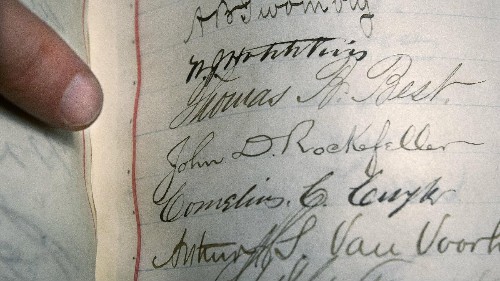 A B Twombly
Thomas A. Best.
John D. Rockefeller
Cornelius. C. Cuyler
Arthur H S. Van Voorh